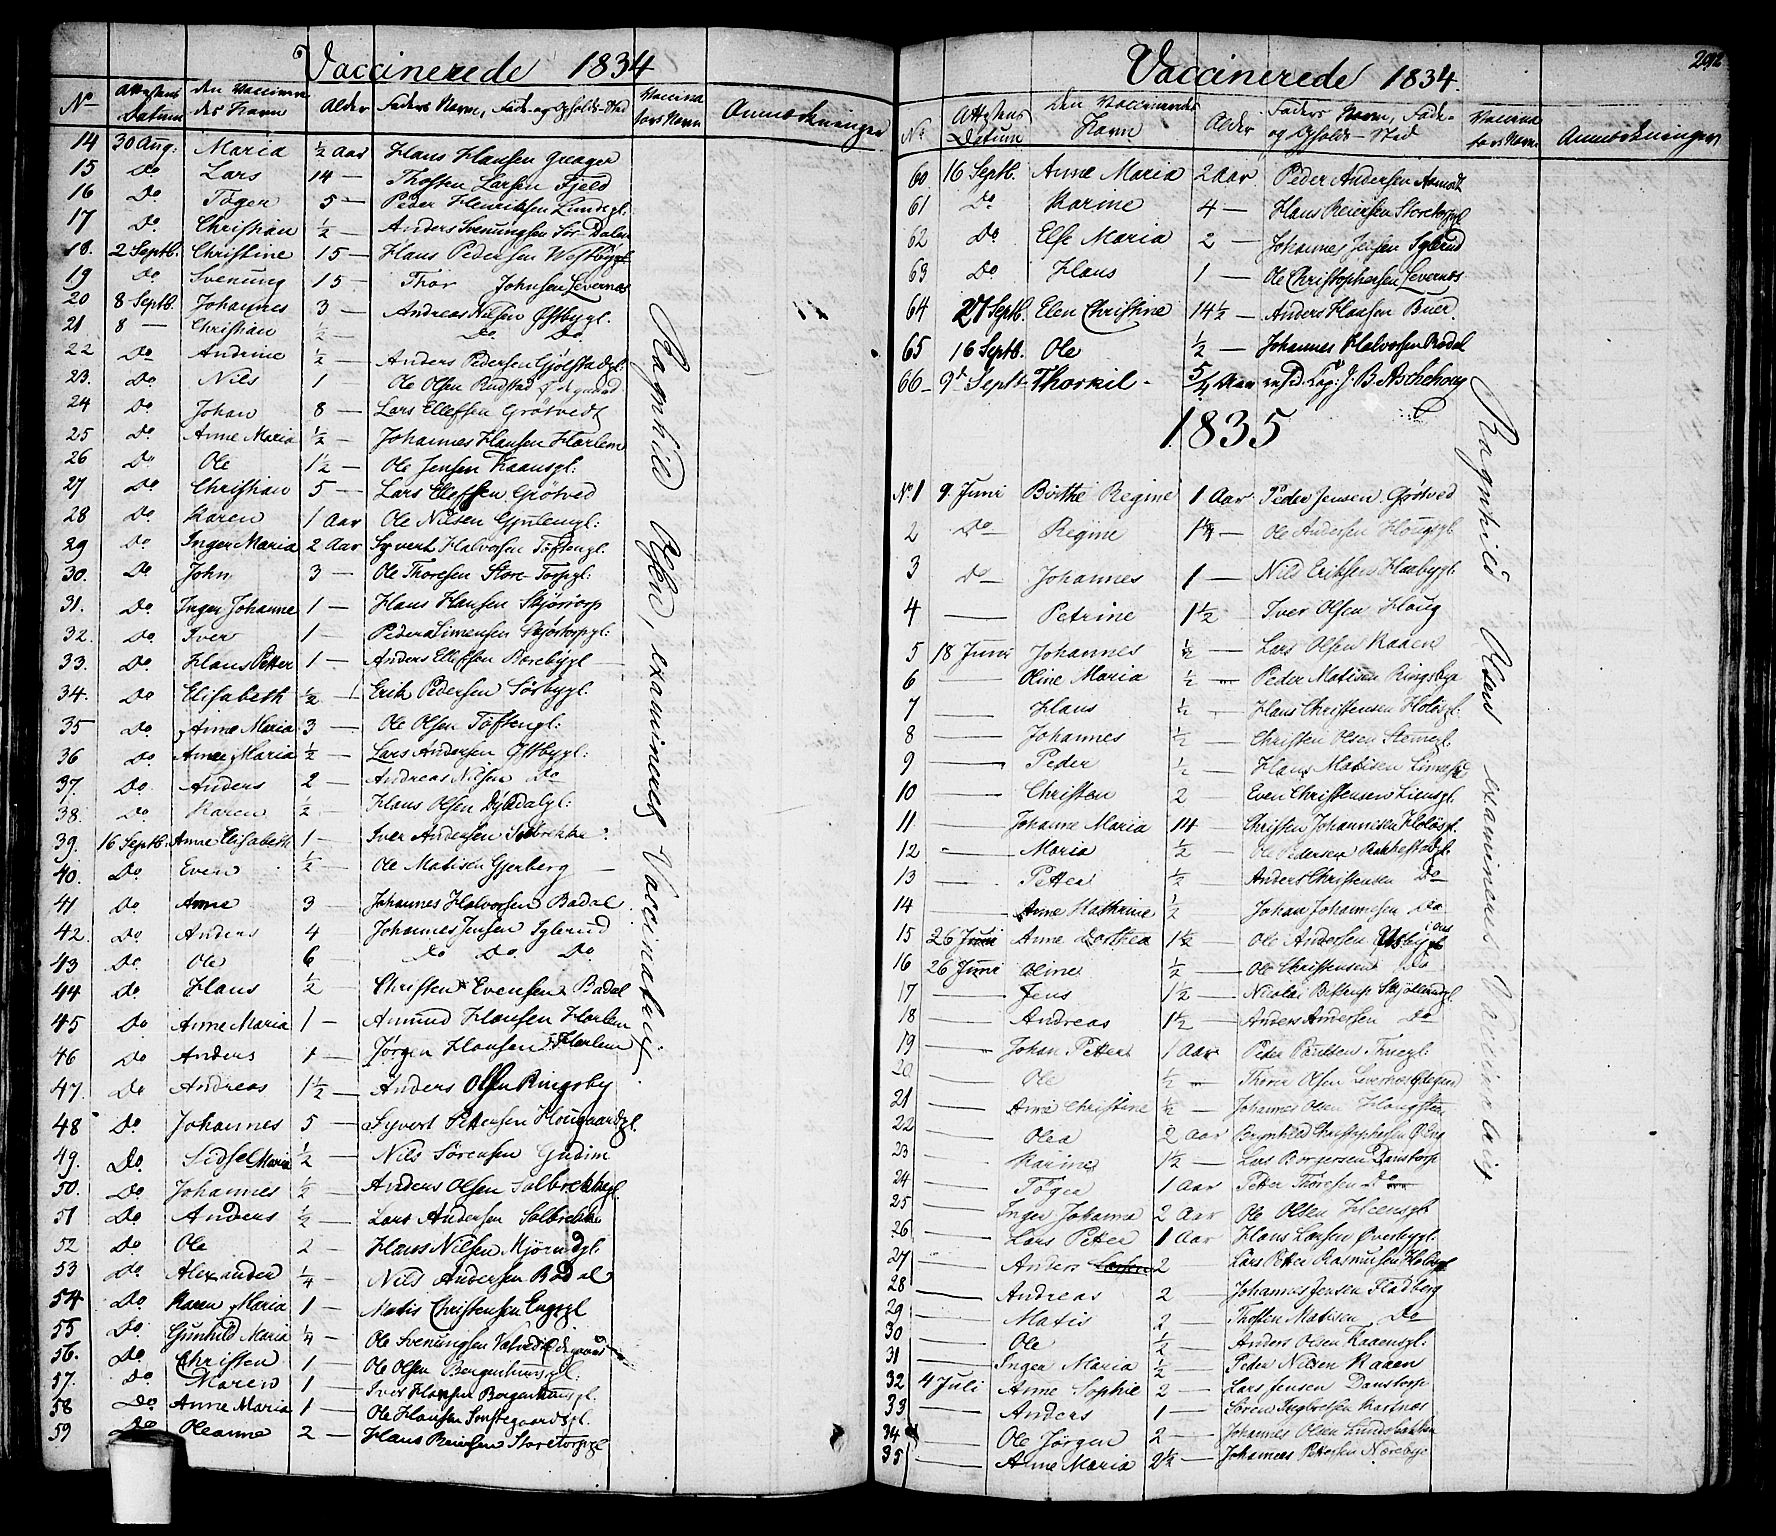 Vaccinerede 1834
No Attestens Datum den Vaccineredes Navn Alder Faders Navn, Føde- og Opholds-Sted Vaccinators Navn Anmærkninger
14 30 Aug: Maria ½ Aar Hans Hansen
15 Do Lars 14 — Thosten Larsen Fjeld
16 Do Töger 5 — Peder Henriksen Lundegl.
17 Do Christian ½ — Anders Svenungsen Sör-Dalen
18. 2 Septb. Christine 15 — Hans Pedersen Westbÿgl
19 Do Svenung 15 — Thor Johnsen Levernæs
20 8 Septb. Johannes 3 — Andreas Nilsen Østbygl.
21 8 — Christian ½ — Do Do
22 Do Andrine ½ — Anders Pedersen Gjølstadgl.
23. Do Nils 1 Ole Olsen Rudstad
24 Do Johan 8 — Lars Ellefsen Grötvedt
25 Do Anne Maria ½ — Johannes Hansen Harlem
26 Do Ole 1½ — Ole Jensen Kaausgl:
27 Do Christian 5 — Lars Ellefsen Grötved
28 Do Karen 1 Aar Ole Nilsen
29 Do Inger Maria 2 Aar Syvert Halvorsen Toftengl.
30. Do John 3 — Ole Thoresen Store-Torpgl:
31. Do Inger Johanne 1 — Hans Hansen Skjörtorp
32. Do Iver 1 — Peder Simensen Skjørtorpgl:
33. Do Hans Petter 1 — Anders Ellefsen Borebÿgl
34. Do Elisabeth ½ — Erik Pedersen Sörbygl.
35 Do Anne Maria 3 — Ole Olsen Töftengl:
36 Do Anne Maria ½ — Lars Andersen Østbygl:
37. Do Anders 2 — Andreas Nilsen Do
38. Do Karen ½ Hans Olsen
39. 16 Septb. Anne Elisabeth 1 — Iver Andersen Solbrekke
40. Do Even ½ — Ole Matisen Gjerberg
41 Do Anne 3 Johannes Halvorsen Badal
42. Do Anders 4 Johannes Jensen Iglerud
43 Do Ole 6 Do Do Do
44 Do Hans ½ — Christen Evensen Badal
45 Do Anne Maria 1 — Amund Hansen Harlem
46 Do Anders 1 — Jörgen Hansen Harlem
47. Do Andreas 1½ — Anders Olsen Ringsby
48 Do Johannes 5 — Syvert Pettersen Hougaardgl.
49. Do Sidsel Maria ½ — Nils Sörensen Gudim
50. Do Johannes ½ — Anders Olsen Solbrekkegl.
51 Do Anders ½ — Lars Andersen Solbrekke
52 Do Ole 2 — Hans Nilsen
53 Do Alexander ¼ — Nils Andersen Badal
54 Do Karen Maria 1 — Matis Christensen Engsgl
55 Do Gunhild Maria ¼ — Ole Svenungsen
56. Do Christen 1 Ole Olsen Borgenhuusgl:
57. Do Maren 1 — Iver Hansen Borgenhausgl.
58 Do Anne Maria 1 — Ole Hansen
59 Do Oleanne 2 — Hans Reiersen Storetorpgl
Ragnhild Olsen, examineret Vaccinateur.
Vaccinerede 1834.
292
No Attestens Datum Den Vaccineredes Navn Alder Faders Navn, Føde- og Opholds-Sted Vaccinators Navn Anmærkninger
60 16 Septb. Anne Maria 2 Aar Peder Andersen Aamodt
61 Do Karine 4 — Hans Reiersen Storetorpgl
62 Do Else Maria 2 — Johannes Jensen Iglerud
63 Do Hans 1 — Ole Christophersen Levernæs
64 27 Septb. Elen Christine 14½ — Anders Hansen Buer
65 16 Septb. Ole ½ — Johannes Halvorsen Badal
66 — 9de Septb. Thorkil — 5/4 Aar resid. Cap: J. B. Aschehoug
1835
No 1 9 Juni Birthe Regine 1 Aar Peder Jensen Grötved
2 Do Regine Ole Andersen Hougsgl
3 Do Johannes 1 — Nils Eriksen Haabygl.
4 — Petrine 1½ Iver Olsen Houg
5 18 Juni Johannes ½ — Lars Olsen Kaaen
6 — Oline Maria ½ — Peder Matisen Ringsbye
7 — Hans ½ — Hans Christensen Holösgl.
8 — Johannes ½ — Christen Olsen Steneegl.
9 — Peder ½ — Hans Matisen
10 — Christen 2 Even Christensen Liensgl.
11 — Johanne Maria 14 — Christen Johannesen Holösgl.
12 — Maria ½ — Ole Pedersen Bakkestadgl.
13 — Petter ½ — Anders Christensen Do
14 — Anne Kathrine ½ Johan Johannesen Do
15 26 Juni Anne Dorthea 1½ — Ole Andersen
16 26 Juni Oline ½ — Ole Christensen Do
17 — Jens 1½ — Nicolai Bistrup Skjöllerudgl
18 — Andreas 1½ — Anders Andersen Do
19 — Johan Petter 1 Aar Peter Poulsen
20 — Ole ½ — Thorer Olsen Levernæs
21 — Anne Christine ½ — Johannes Olsen Hougsteen
22 — Olea 2 Aar Brynhild Christophersen
23 — Karine 1½ — Lars Borgersen Danstorp
24 — Töger 1 Aar Petter Thoresen Do
25 — Inger Johanna 2 Aar Ole Olsen
26 — Lars Peter 1 Aar Hans Larsen Øverbygl.
27 — Anders 2 — Lars Petter Rasmussen
28 — Andreas 2 — Johannes Jensen Fladberg
29 — Matis 2 — Thosten Matisen Do
30 — Ole ½ — Anders Olsen Kaaensgl.
31 — Inger Maria ½ — Peder Nilsen Kaaen
32 4 Juli Anne Sophie 2 — Lars Jensen Danstorp
33 — Anders 1 — Sören Ingbretsen
34 — Ole Jörgen 2 — Johannes Olsen Lundsbakken
35 — Anne Maria 2½ — Johannes Pettersen Norebye
Ragnhild Olsen examineret Vaccinateur